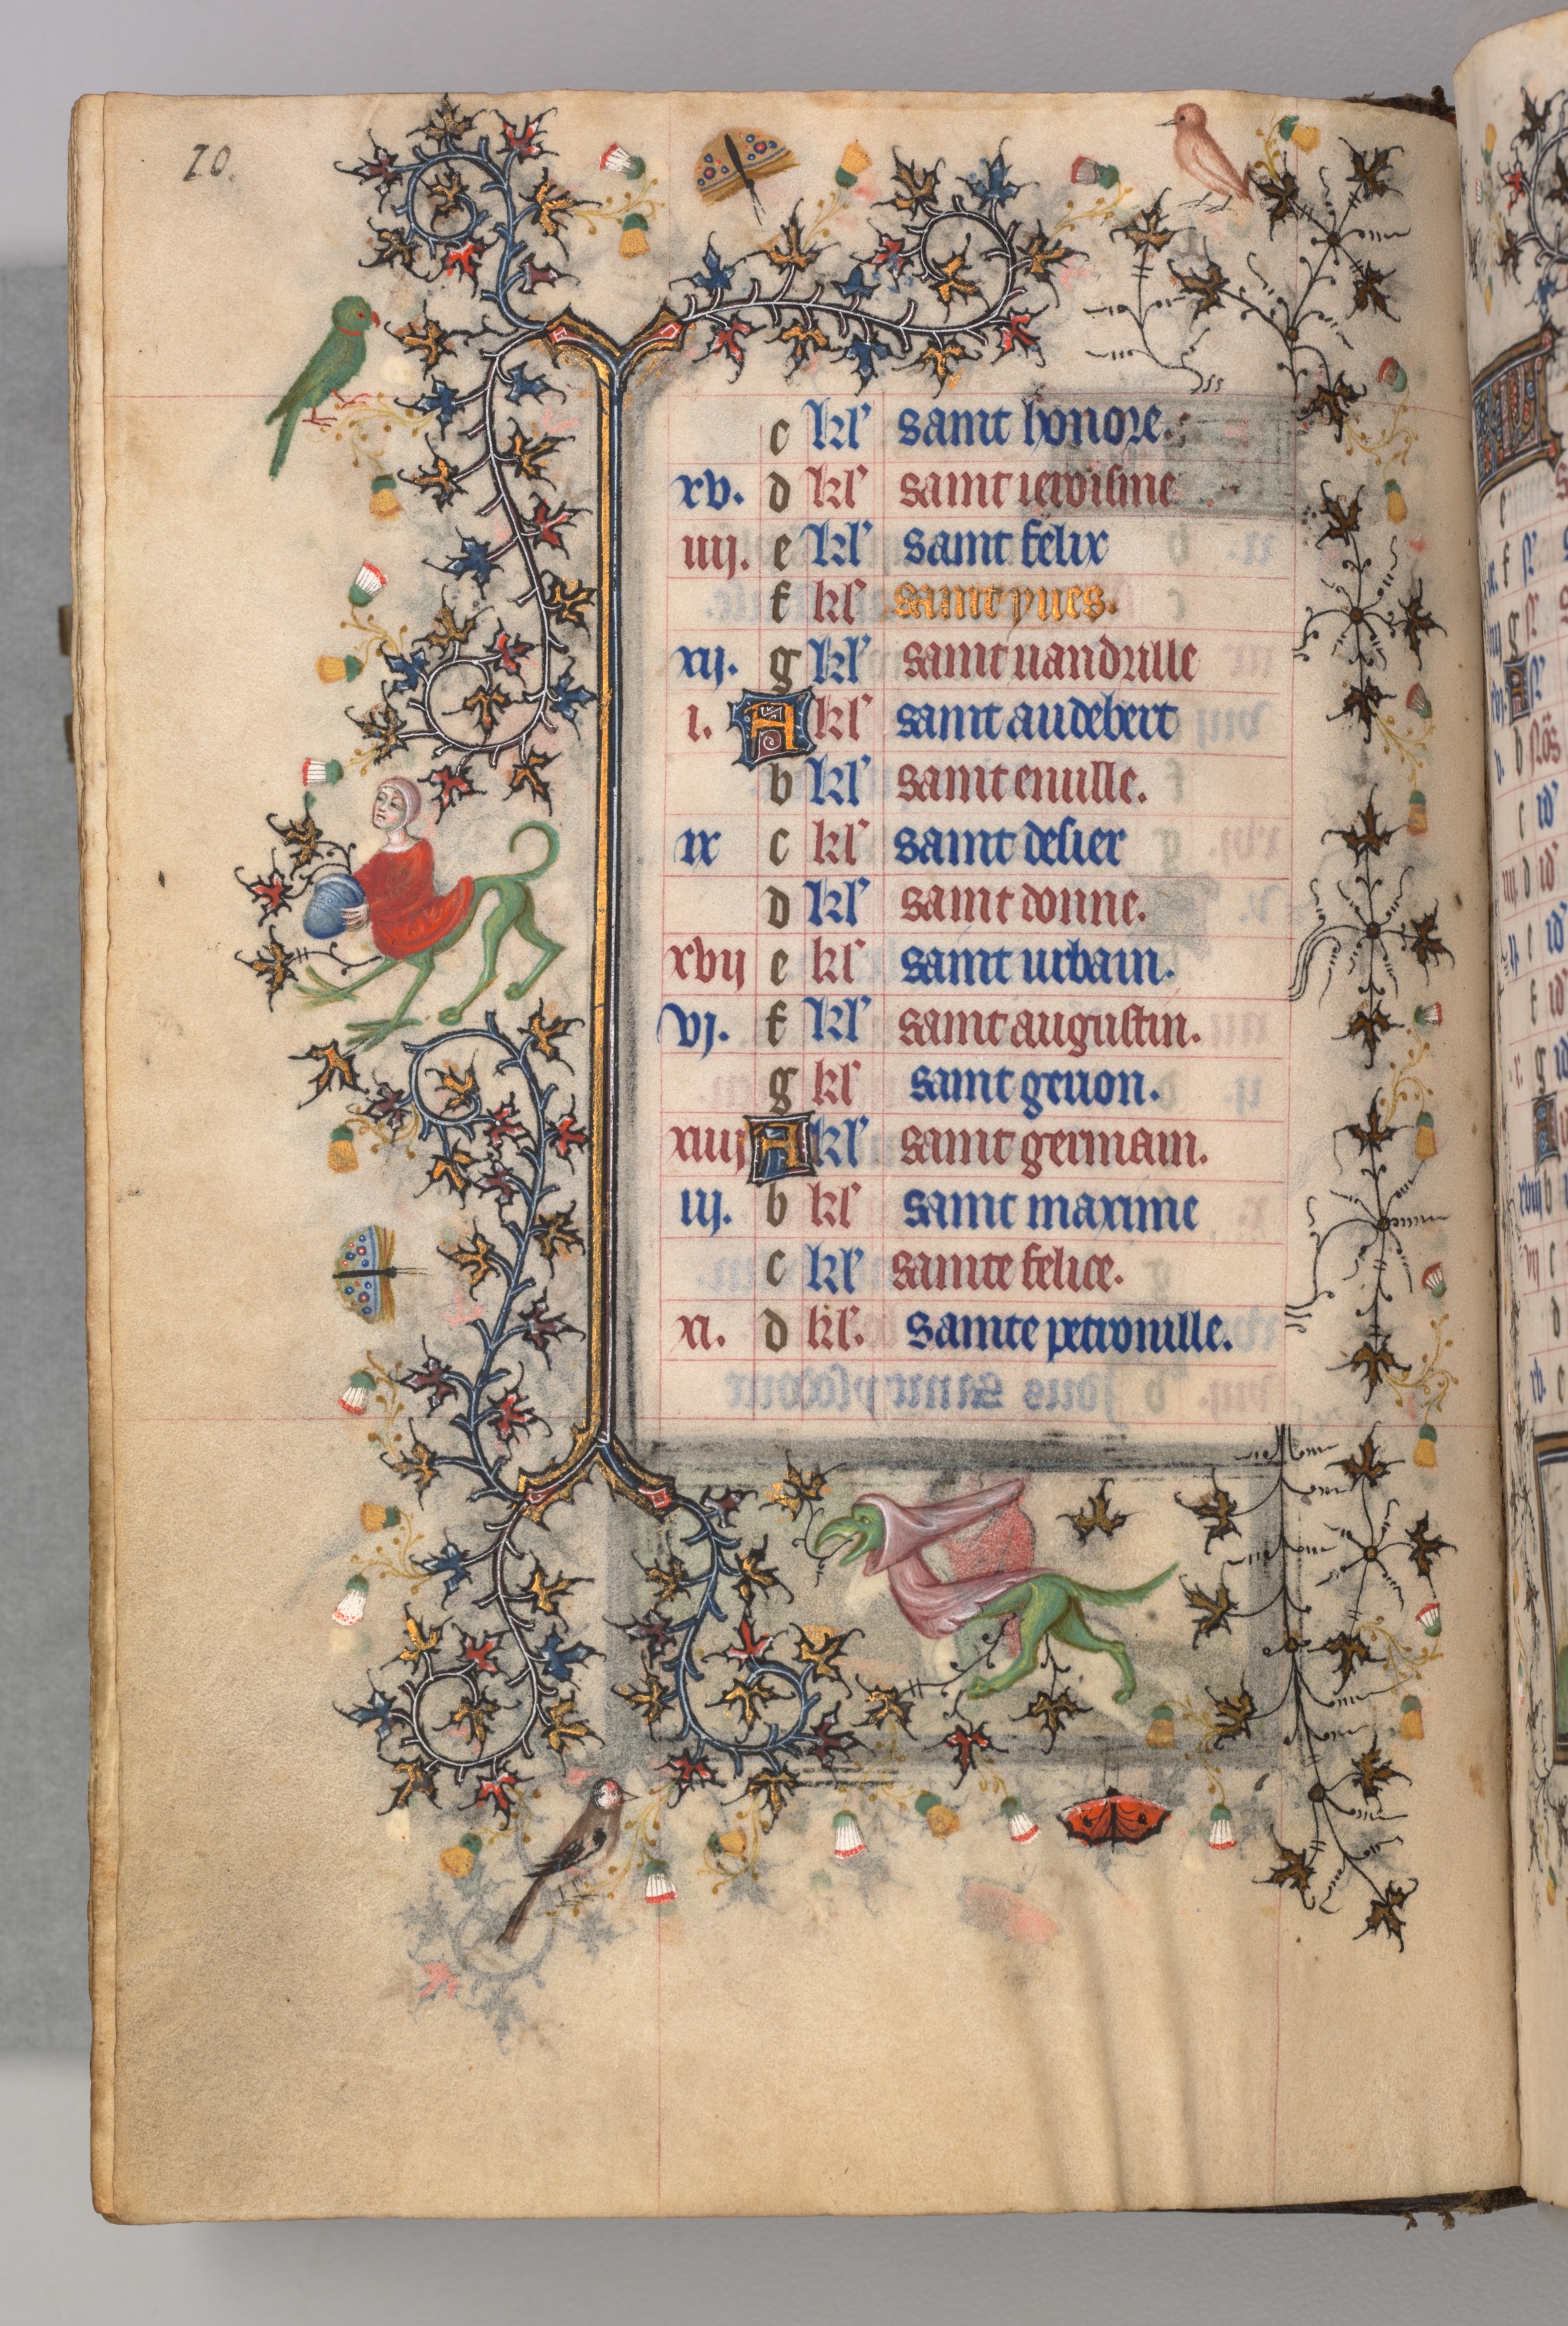 10.
c kl' saint honore.
xv. d kl' saint iewisme
iiij. e kl' saint felix
f kl' saint yues.
xij. g kl' saint uandrille
i. A kl' saint audebert
b kl' saint emille.
ix c kl' saint desier
d kl' saint donne.
xvij e kl' saint urbain.
vj. f kl' saint augustin.
g kl' saint geuon.
xiiij A kl' saint germain.
iij. b kl' saint maxime
c kl' sainte felice.
xi. d kl'. sainte petronille.